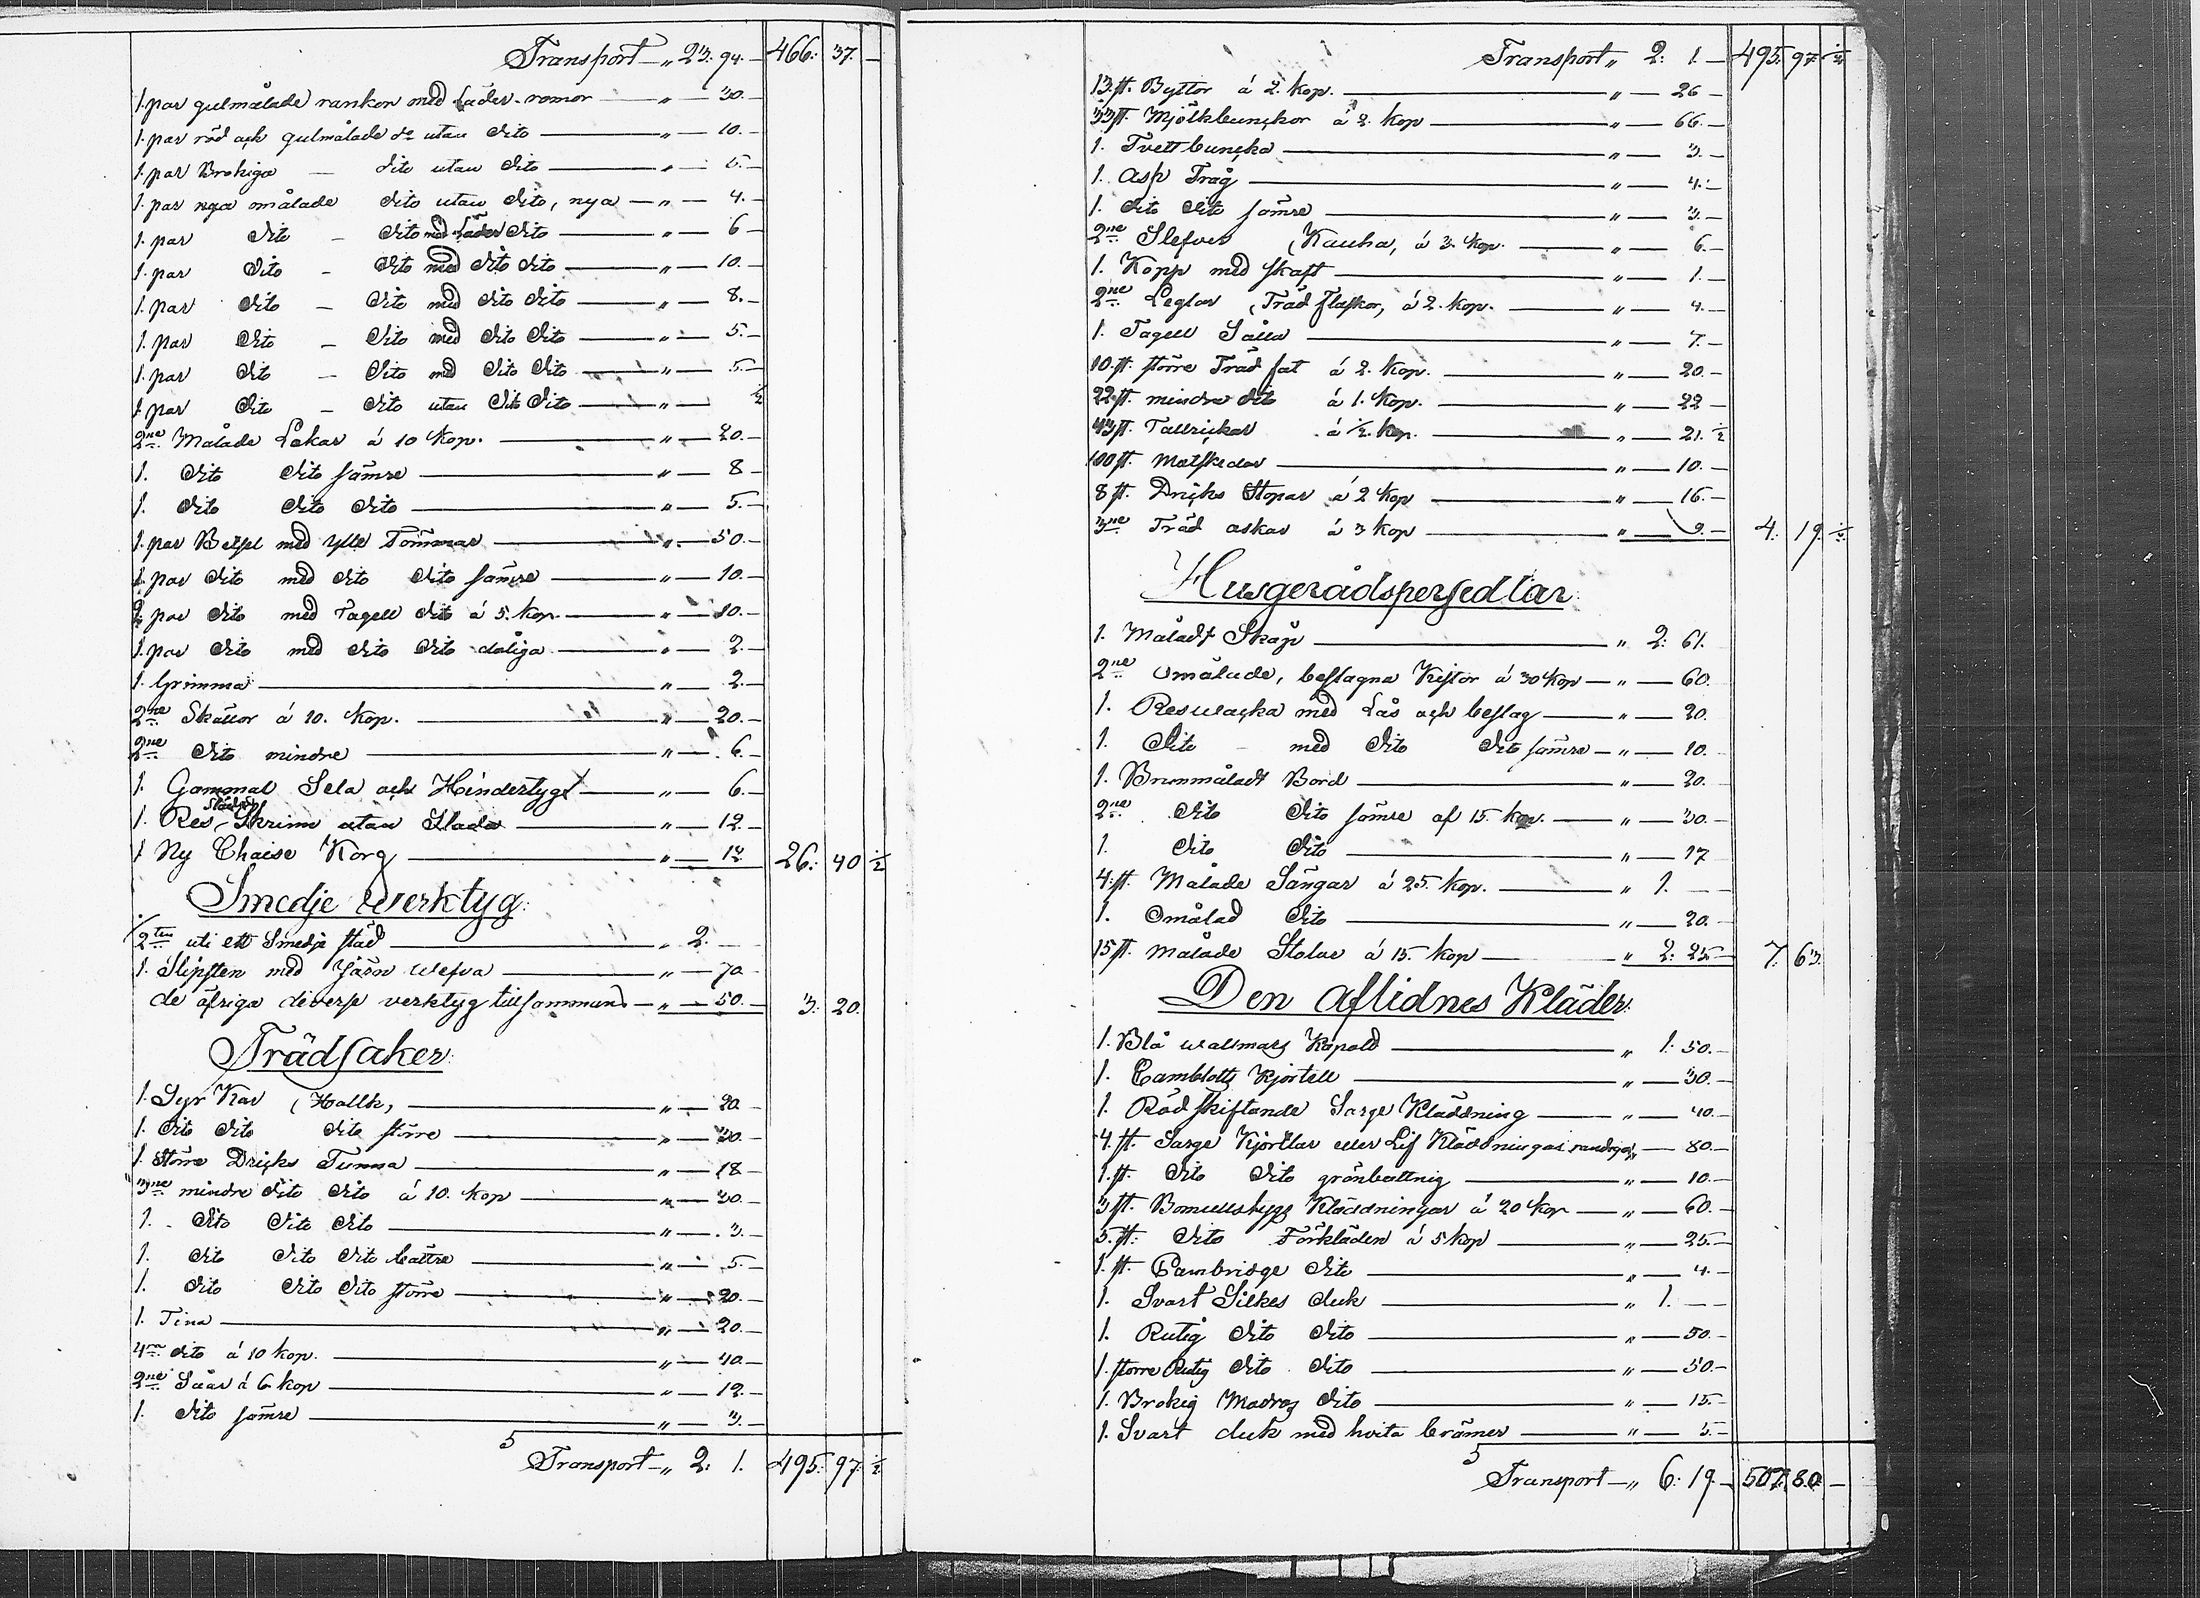 Transport — „ 23. 94. — 466: 37. —
1. par gulmålade rankor med Läder-romor — „ — 30. —
1. par röd ach gulmålade do utan dito — „ — 10. —
1. par Brokiga — dito utan dito — „ — 5. —
1. par nya omålade dito utan dito, nya — „ — 4. —
1. par dito — dito med Läder dito — „ — 6 —
1. par dito — dito med dito dito — „ — 10. —
1. par dito — dito med dito dito — „ — 8. —
1. par dito — dito med dito dito — „ — 5. —
1. par dito — dito med dito dito — „ — 5 —
1. par dito — dito utan dito dito — „ — ½
2ne Målade Lokar á 10 Kop. — „ — 20. —
1. dito dito sämre — „ — 8 —
1. dito dito dito — „ — 5. —
1. par Betsel med ylle Tömmar — „ — 50. —
1. par dito med dito dito sämre — „ — 10. —
2 par dito med Tagell dito á 5. kop. — „ — 10. —
1. par dito med dito dito dåliga — „ — 2. —
1. Grimma — „ — 2. —
2ne Skällor á 10. Kop. — „ — 20. —
2ne dito mindre — „ — 6. —
1. Gammal Sela ach Hindertyg — „ — 6. —
1. Res-Skrinn utan Slada — „ — 12. —
1 Ny Chaise Korg — „ — 12. 26: 40 ½
Smedje werktyg:
½ten uti ett Smedje städ — „ 2. —
1. Slipsten med Järn wefva — „ — 70 —
de öfriga diverse verktyg tillsammans — „ — 50. — 3: 20.
Trädsaker:
1. Syr Kar (Kalk, — „ — 20. —
1. dito dito dito större — „ — 30. —
1. större Dricks Tunna — „ — 18 —
3ne mindre dito dito á 10. kop — „ — 30. —
1. dito dito dito — „ — 3. —
1. dito dito dito bättre — „ — 5. —
1. dito dito dito större — „ — 20. —
1. Tina — „ — 20. —
4ra dito á 10 kop. — „ — 40. —
2ne Såar á 6 kop — „ — 12. —
1. dito sämre — „ — 3. —
Transport — „ 2: 1. 495: 97. ½
Transport „ 2: 1. — 495. 97. ½
13. st. Byttor á 2. kop. — „ — 26 —
33 st. Mjölkbunckor á 2. Kop — „ — 66. —
1. Tvettbuncka — „ — 3. —
1. Asp Tråg — „ — 4. —
1. dito dito sämre — „ — 3. —
2ne Slefvar (Kauha, á 3. kop. — „ — 6. —
1. Kopp med skaft — „ — 1. —
2ne Leglar (Träd flaskor, á 2. kop. — „ — 4. —
1. Tagell Såll — „ — 7. —
10. st. större Träd fat á 2. kop. — „ — 20. —
22 st. mindre dito á 1. Kop. — „ — 22 —
43 st. Tallrickar á ½. kop. — „ — 21. ½
100 st. Matskedar — „ — 10. —
8 st. Dricks Stopar á 2 Kop — „ — 16. —
3ne Träd askar á 3 kop — „ — 9. — 4: 19. ½
Husgerådspersedlar:
1. Måladt Skåp — „ 2: 61.
2ne Omålade, beslagna Kistor á 30 Kop — „ — 60.
1. Reswacka med Lås ach beslag — „ — 20.
1. dito — med dito dito sämre — „ — 10. —
1. Brunmåladt Bord — „ — 20.
2ne dito dito sämre af 15. kop. — „ — 30. —
1. dito dito — „ — 17
4. st. Målade Sängar á 25. kop. — „ 1. —
1. Omålad dito — „ — 20. —
15 st. målade Stolar á 15. kop — „ 2: 25. — 7: 63.
Den aflidnes Kläder:
1. Blå wallmars Kapald — „ 1. 50. —
1. Camblotts Kjortell — „ — 30. —
1. Röd skiftande Sarge Klädning — „ — 40. —
4. st. Sarge Kjortlar eller Lif Klädningar randiga „ — 80. —
1. st. dito dito grönbottnig — „ — 10. —
3 st. Bomullstygs Klädningar á 20 Kop — „ — 60. —
5. st. dito Förkläden á 5 kop — „ — 25. —
1. st. Cambridge dito — „ — 4. —
1. Svart Silkes duk — „ 1. —
1. Rutig dito dito — „ — 50. —
1. större Rutig dito dito — „ — 50. —
1. Brokig Madras dito — „ — 15. —
1. Svart duk med hvita brämer — „ — 5. —
Transport — „ 6: 19. — 507: 80. —